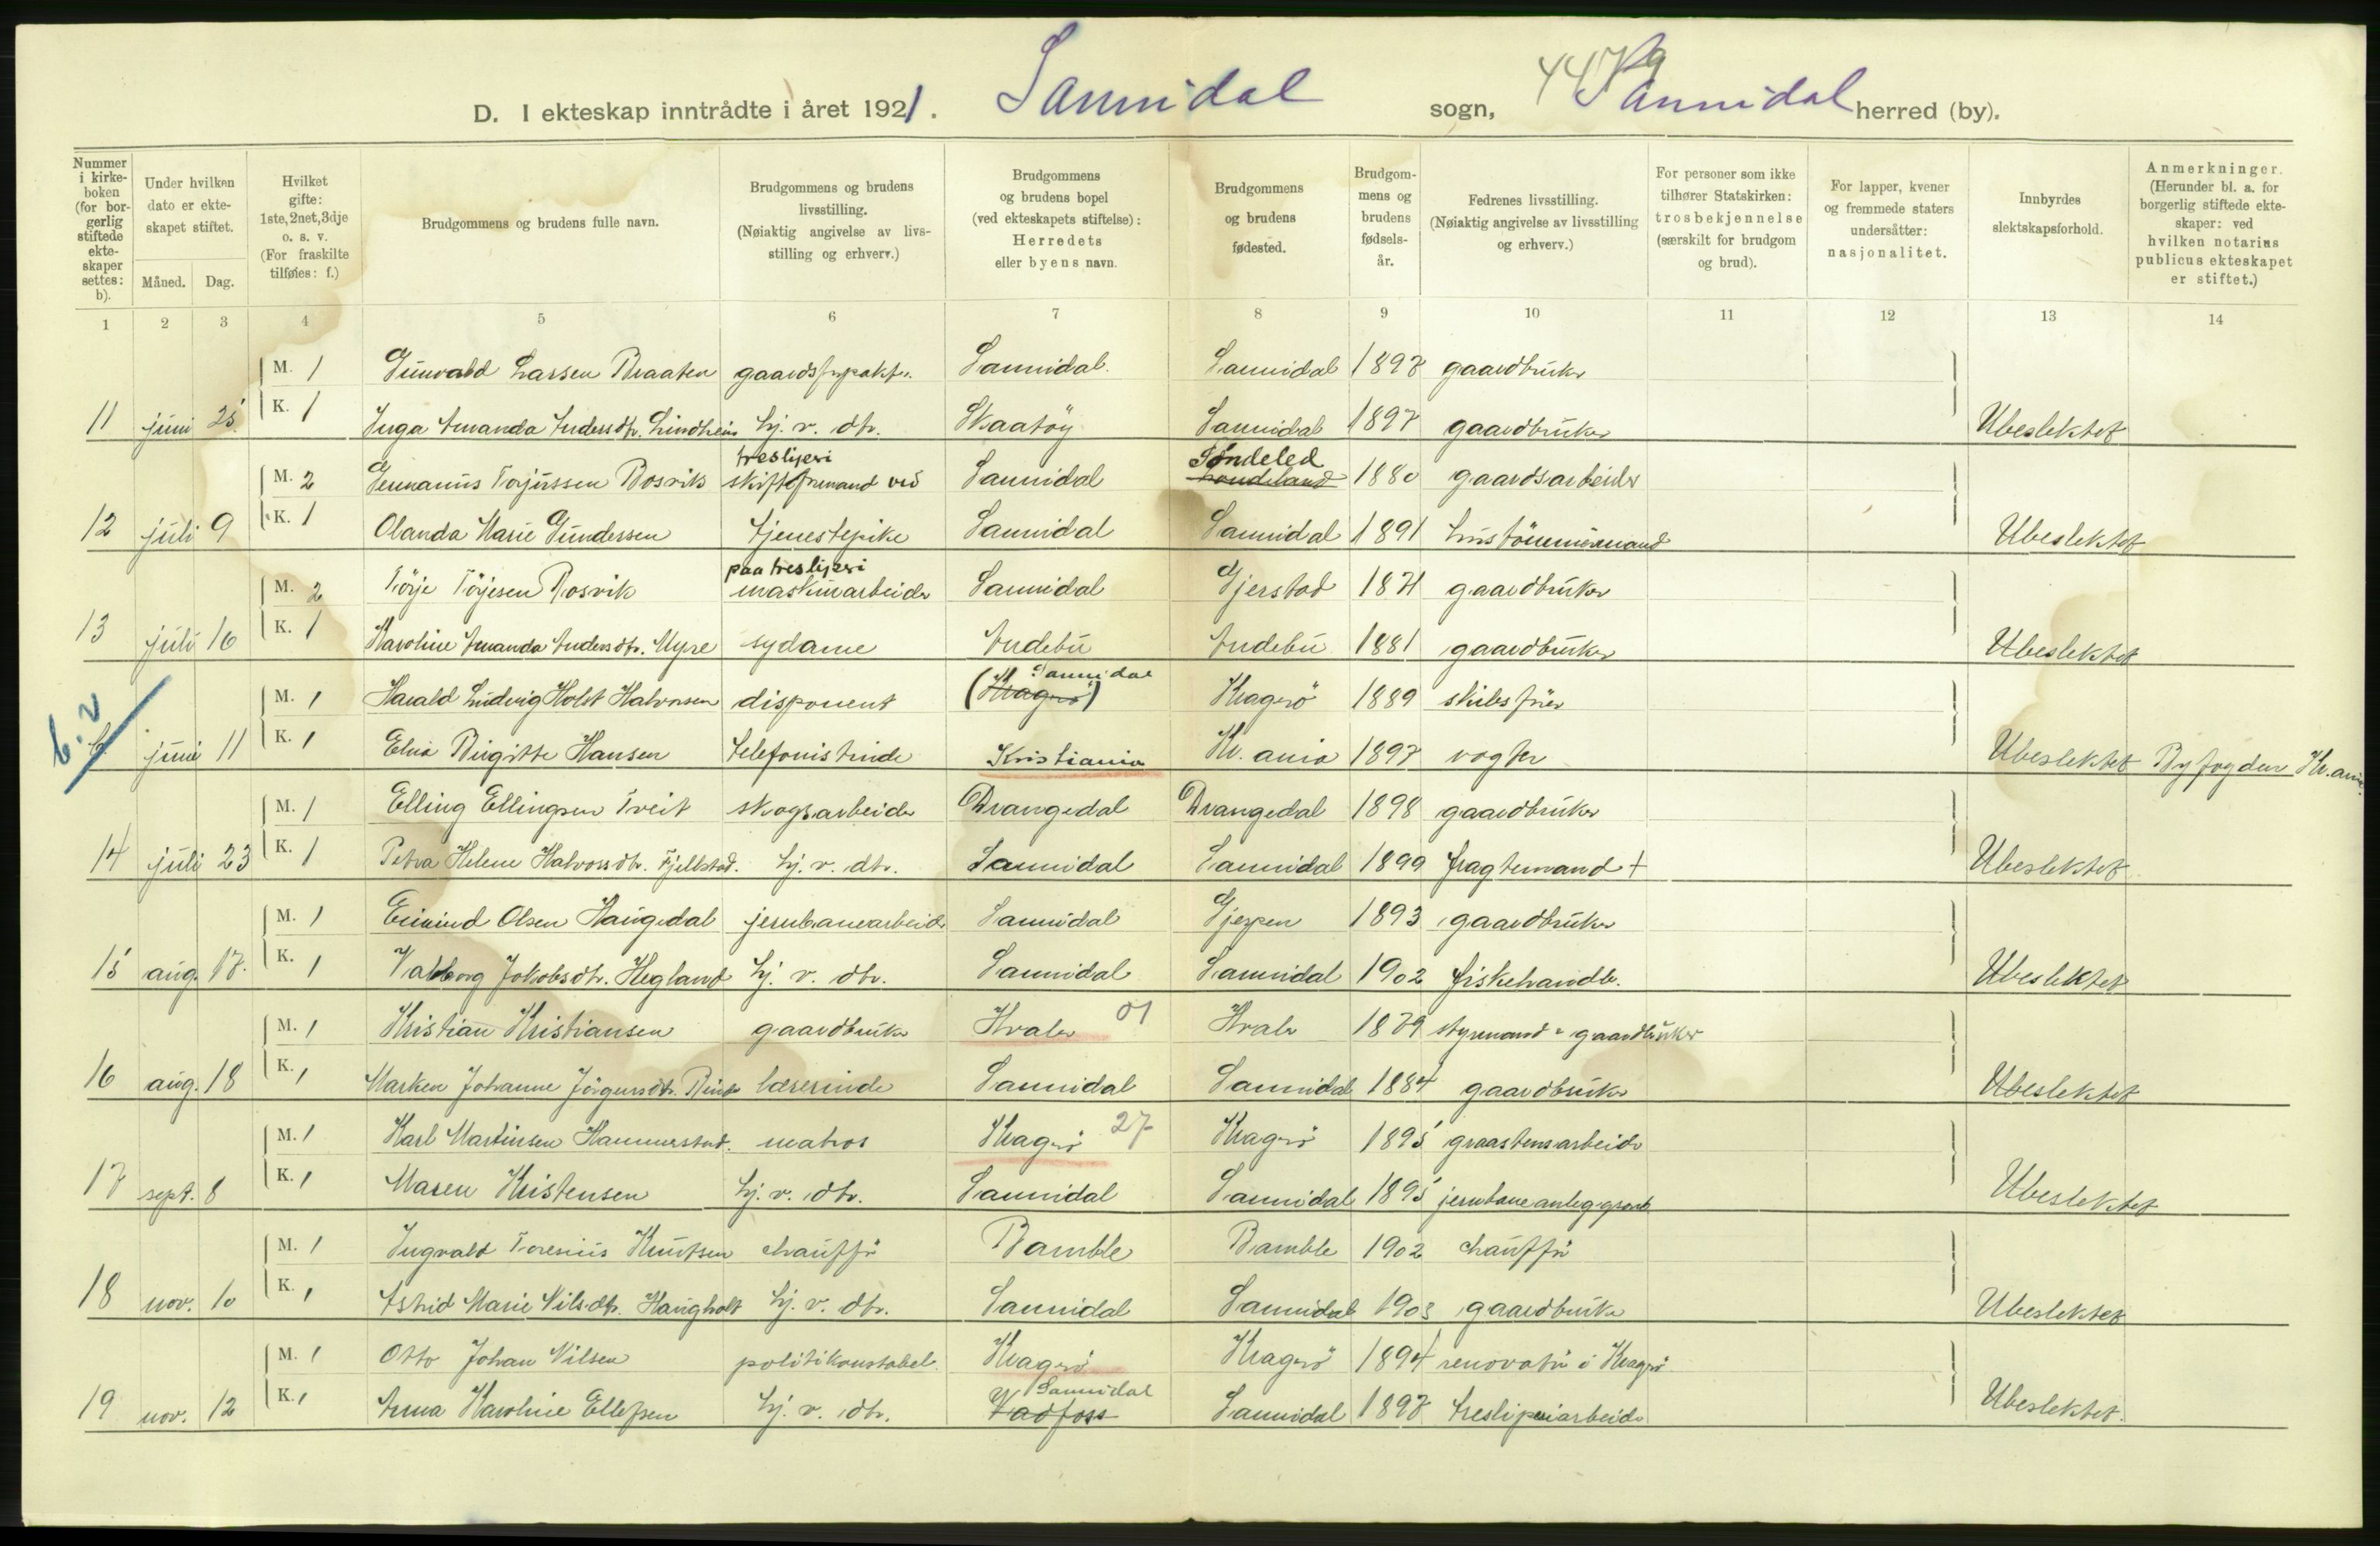 D. I ekteskap inntrådte i året 1921. Sannidal sogn, Sannidal herred (by).
4479
Nummer i kirkeboken (for borgerlig stiftede ekteskaper settes: b).
Under hvilken dato er ekteskapet stiftet.
Måned. Dag.
Hvilket gifte: 1ste, 2net, 3dje o. s. v. (For fraskilte tilføies: f.)
Brudgommens og brudens fulle navn.
Brudgommens og brudens livsstilling. (Nøiaktig angivelse av livsstilling og erhverv.)
Brudgommens og brudens bopel (ved ekteskapets stiftelse): Herredets eller byens navn.
Brudgommens og brudens fødested.
Brudgommens og brudens fødselsår.
Fedrenes livsstilling. (Nøiaktig angivelse av livsstilling og erhverv.)
For personer som ikke tilhører Statskirken: trosbekjennelse (særskilt for brudgom og brud).
For lapper, kvener og fremmede staters undersåtter: nasjonalitet.
Innbyrdes slektskapsforhold.
Anmerkninger. (Herunder bl. a. for borgerlig stiftede ekteskaper: ved hvilken notarius publicus ekteskapet er stiftet.)
1 2 3 4 5 6 7 8 9 10 11 12 13 14
M. 1 Gunvald Larsen Braaten Sannidal. Sannidal 1897 gaardbruker
11 juni 25. K. 1 Inga Amanda Andersdtr. Lindheim hj. v. dtr. Skaatöy Sannidal 1897 gaardbruker Ubeslektet
tresliperi Söndeled
M. 2 Germanus Terjussen Bosvik skiftformand ved Sannidal 1880 gaardsarbeider
12 juli 9 K. 1 Olanda Marie Gundersen tjenestepike Sannidal Sannidal 1891 hustömmermand Ubeslektet
paa tresliperi
M. 2 Törje Töjesen Rosvik maskinarbeider Sannidal Gjerstad 1871 gaardbruker
13 juli 16 K. 1 Karoline Amanda Andersdtr. Myre sydame Andebu Andebu 1881 gaardbruker Ubeslektet
Sannidal
M. 1 Harald Ludvig Holst Halvorsen disponent (Kragerö) Kragerö 1889 skibsförer
b. 2 juni 11 K. 1 Elna Birgitte Hansen telefonistinde Kristiania Kr.ania 1897 vogter Ubeslektet Byfogden Kr.ania.
M. 1 Elling Ellingsen Tveit skogsarbeider Drangedal Drangedal 1898 gaardbruker
14 juli 23 K. 1 Petra Helene Halvorsdtr. Fjellstad. hj. v. dtr. Sannidal Sannidal 1899 fragtemand + Ubeslektet
M. 1 Eivind Olsen Haugedal jernbanearbeider Sannidal Gjerpen 1893 gaardbruker
15 aug. 17. K. 1 Valborg Jakobsdtr. Hegland hj. v. dtr. Sannidal Sannidal 1902 fiskehandler. Ubeslektet
M. 1 Kristian Kristiansen gaardbruker Hvaler 01 Hvaler 1879 styrmand & gaardbruker
16 aug. 18 K. 1 Marken Johanne Jörgensdtr. lærerinde Sannidal Sannidal 1884 gaardbruker Ubeslektet
M. 1 Karl Martinsen Hammerstad. matros Kragerö 27 Kragerö 1895 graastensarbeider
17 sept. 8 K. 1 Maren Kristensen hj. v. dtr. Sannidal Sannidal 1895 jernbaneanlegsarb. Ubeslektet
M. 1 Ingvald Toresius Knutsen chaufför Bamble Bamble 1902 chaufför
18 nov. 10 K. 1 Astrid Marie Nilsdtr. Haugholt hj. v. dtr. Sannidal Sannidal 1903 gaardbruker Ubeslektet
M. 1 Otto Johan Nilsen politikonstabel. Kragerö Kragerö 1894 renovatör i Kragerö.
Sannidal
19 nov. 12 K. 1 Anna Karoline Ellefsen hj. v. dtr. Vadfoss Sannidal 1897 tresliperiarbeider Ubeslektet.